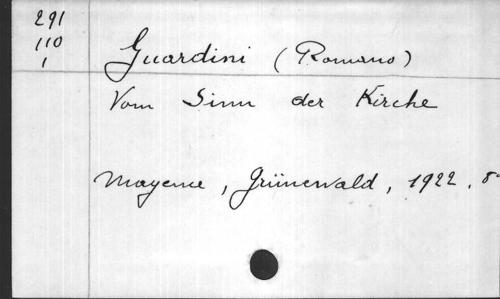 291
110
1
Guardini (Romano)
Vom Sinn der Kirche
Mayence, Grünewald, 1922. 8°